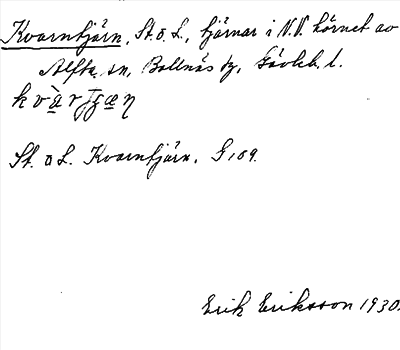 Kvarntjärn, St. o. L., tjärnar i N.V. hörnet av
Alfta sn, Bollnäs dg, Gävleb. l.
St. o L. Kvarntjärn. G 109.
Erik Eriksson 1930.